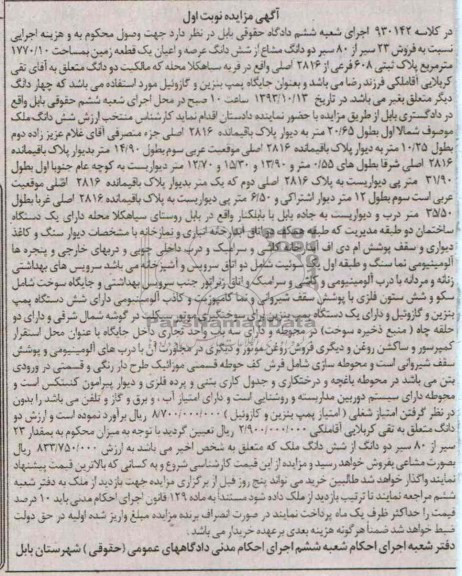 آگهی مزایده نوبت اول
در کلاسه ۹۳۰۱۴۲ اجرای شعبه ششم دادگاه حقوقی بابل در نظر دارد جهت وصول محکوم به و هزینه اجرایی
نسبت به فروش ۲۳ سیر از ۸۰ سیر دو دانگ مشاع از شش دانگ عرصه و اعیان یک قطعه زمین بمساحت ۱۷۷۰/۱۰
مترمربع پلاک ثبتی ۶۰۸ فرعی از ۲۸۱۶ اصلی واقع در قریه سیاهکلا محله که مالکیت دو دانگ متعلق به آقای تقی
کربلایی آقاملکی فرزند رضا می باشد و بعنوان جایگاه پمپ بنزین و گازوئیل مورد استفاده می باشد که چهار دانگ
دیگر متعلق بغیر می باشد. در تاریخ ۱۳۹۳/۱۰/۱۳ ساعت ۱۰ صبح در محل اجرای شعبه ششم حقوقی بابل واقع
در دادگستری بابل از طریق مزایده با حضور نماینده دادستان اقدام نماید کارشناس منتخب ارزش شش دانگ ملک
موصوف شمالا اول بطول ۲۰/۶۵ متر به دیوار پلاک باقیمانده ۲۸۱۶ اصلی جزء متصرفی آقای غلام عزیز زاده دوم
بطول ۱۰/۲۵ متر به دیوار پلاک باقیمانده ۲۸۱۶ اصلی موقعیت عربی سوم بطول ۱۴/۹۰ متر بدیوار پلاک باقیمانده
۲۸۱۶ اصلی شرقا بطول های ۰/۵۵ متر و ۱۳/۹۰ و ۱۵/۳۰ و ۱۲/۷۰ متر دیواریست به کوچه عام جنوبا اول بطول
۳۱/۹۰ متر پی دیواریست به پلاک ۲۸۱۶ اصلی دوم که یک متر بدیوار پلاک باقیمانده ۲۸۱۶ اصلی موقعیت
عربی است سوم بطول ۱۲ متر دیوار اشتراکی و ۶/۵۰ متر پی دیواریست به پلاک باقیمانده ۲۸۱۶ اصلی غربا بطول
۳۵/۵۰ متر درب و دیواریست به جاده بابل با بابلکنار واقع در بابل روستای سیاهکلا محله دارای یک دستگاه
ساختمان دو طبقه مدیریت که طبقه همکف دو اتاق انبارخانه انباری و نمازخانه با مشخصات دیوار سنگ و کاغذ
دیواری و سقف پوشش ام دی اف کاشی و سرامیک و درب داخلی چوبی و دربهای خارجی و پنجره ها
آلومینیومی نما سنگ و طبقه اول سوئیت شامل دو اتاق سرویس و آشپزخانه می باشد سرویس های بهداشتی
زنانه و مردانه با درب آلومینیومی و کاشی و سرامیک و اتاق ژنراتور جنب سرویس بهداشتی و جایگاه سوخت شامل
سکو و شش ستون فلزی با پوشش سقف شیروانی و نما کامپوزیت و کاذب آلومینیومی دارای شش دستگاه پمپ
بنزین و گازوئیل و دارای یک دستگاه پمپ بنزین برای سوختگیری موتور سیکلت در گوشه شمال شرقی و دارای دو
حلقه چاه (منبع ذخیره سوخت) در محوطه و دارای دو باب واحد تجاری داخل جایگاه با عنوان محل استقرار
کمپرسور و ساکشن روغن و دیگری فروش روغن موتور و دیگری در مجاورت آن با درب های آلومینیومی و پوشش
سقف شیروانی است و محوطه سازی شامل فرش کف حوطه قسمتی موزائیک طرح دار رنگی و قسمتی در ورودی
بتن می باشد در محوطه باغچه و درختکاری و جدول کاری بتنی و پرده فلزی و دیوار پیرامون کنستکس است و
محوطه دارای سیستم دوربین مداربسته و روشنایی است و دارای امتیاز آب، و برق و گاز و تلفن می باشد را بدون
در نظر گرفتن امتیاز شغلی (امتیاز پمپ بنزین و کازوئیل) ۸/۷۰۰/۰۰۰/۰۰۰ ریال برآورد نموده است و ارزش دو
دانگ متعلق به تقی کربلایی آقاملکی ۲/۹۰۰/۰۰۰/۰۰۰ ریال تعیین گردید با توجه به میزان محکوم به بمقدار ۲۳
سیر از ۸۰ سیر دو دانگ از شش دانگ ملک که متعلق به شخص اخیر می باشد به ارزش ۸۳۳/۷۵۰/۰۰۰ ریال
بصورت مشاعی بفروش خواهد رسید و مزایده از این قیمت کارشناسی شروع و به کسانی که بالاترین قیمت پیشنهاد
نمایند واگذار خواهد شد طالبین خرید می تواند پنج روز قبل از برگزاری مزایده جهت بازدید از ملک به دفتر شعبه
ششم مراجعه نمایند تا ترتیب بازدید از ملک داده شود مستندا به ماده ۱۲۹ قانون اجرای احکام مدنی باید ۱۰ درصد
قیمت را حداکثر ظرف یک ماه پرداخت نمایند در صورت انصراف برنده مزایده مبلغ واریز شده اولیه در حق دولت
ضبط خواهد شد ضمنا هر گونه هزینه بعدی بر عهده خریدار می باشد.
دفتر شعبه اجرای احکام شعبه ششم اجرای احکام مدنی دادگاههای عمومی (حقوقی) شهرستان بابل